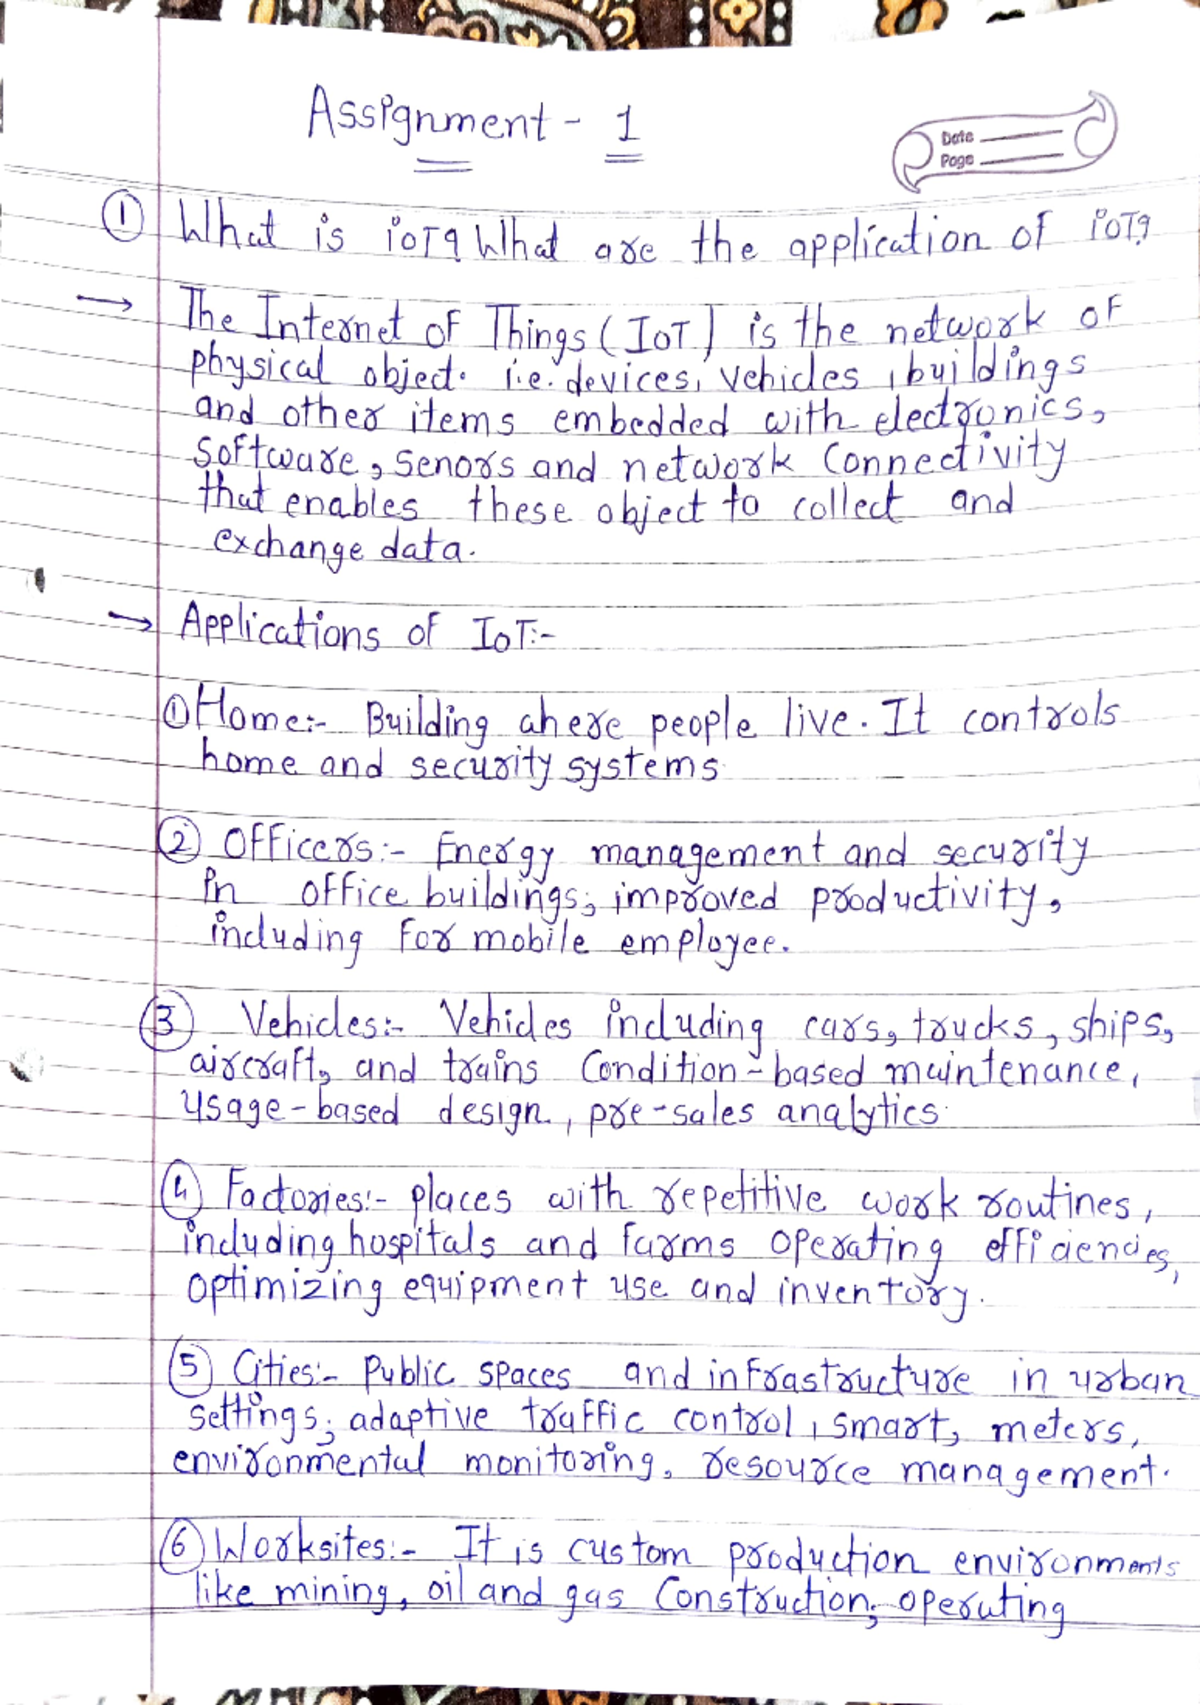 Assignment - 1
Date
Page
① What is ioT? What are the application of ioT?
→ The Internet of Things (IoT) is the network of
physical object. i.e. devices, vehicles, buildings
and other items embedded with electronics,
software, senors and network Connectivity
that enables these object to collect and
exchange data.
→ Applications of IoT:-
① Home:- Building ahere people live. It controls
home and security systems
② Officers:- Energy management and security
in office buildings; improved productivity,
including for mobile employee.
③ Vehicles:- Vehicles including cars, trucks, ships,
aircraft, and trains Condition-based maintenance,
usage-based design, pre-sales analytics
④ Factories:- places with repetitive work routines,
including hospitals and farms operating efficiencies,
optimizing equipment use and inventory.
⑤ Cities:- Public spaces and infrastructure in urban
settings; adaptive traffic control, smart, meters,
environmental monitoring, resource management.
⑥ Worksites:- It is custom production environments
like mining, oil and gas Construction; operating